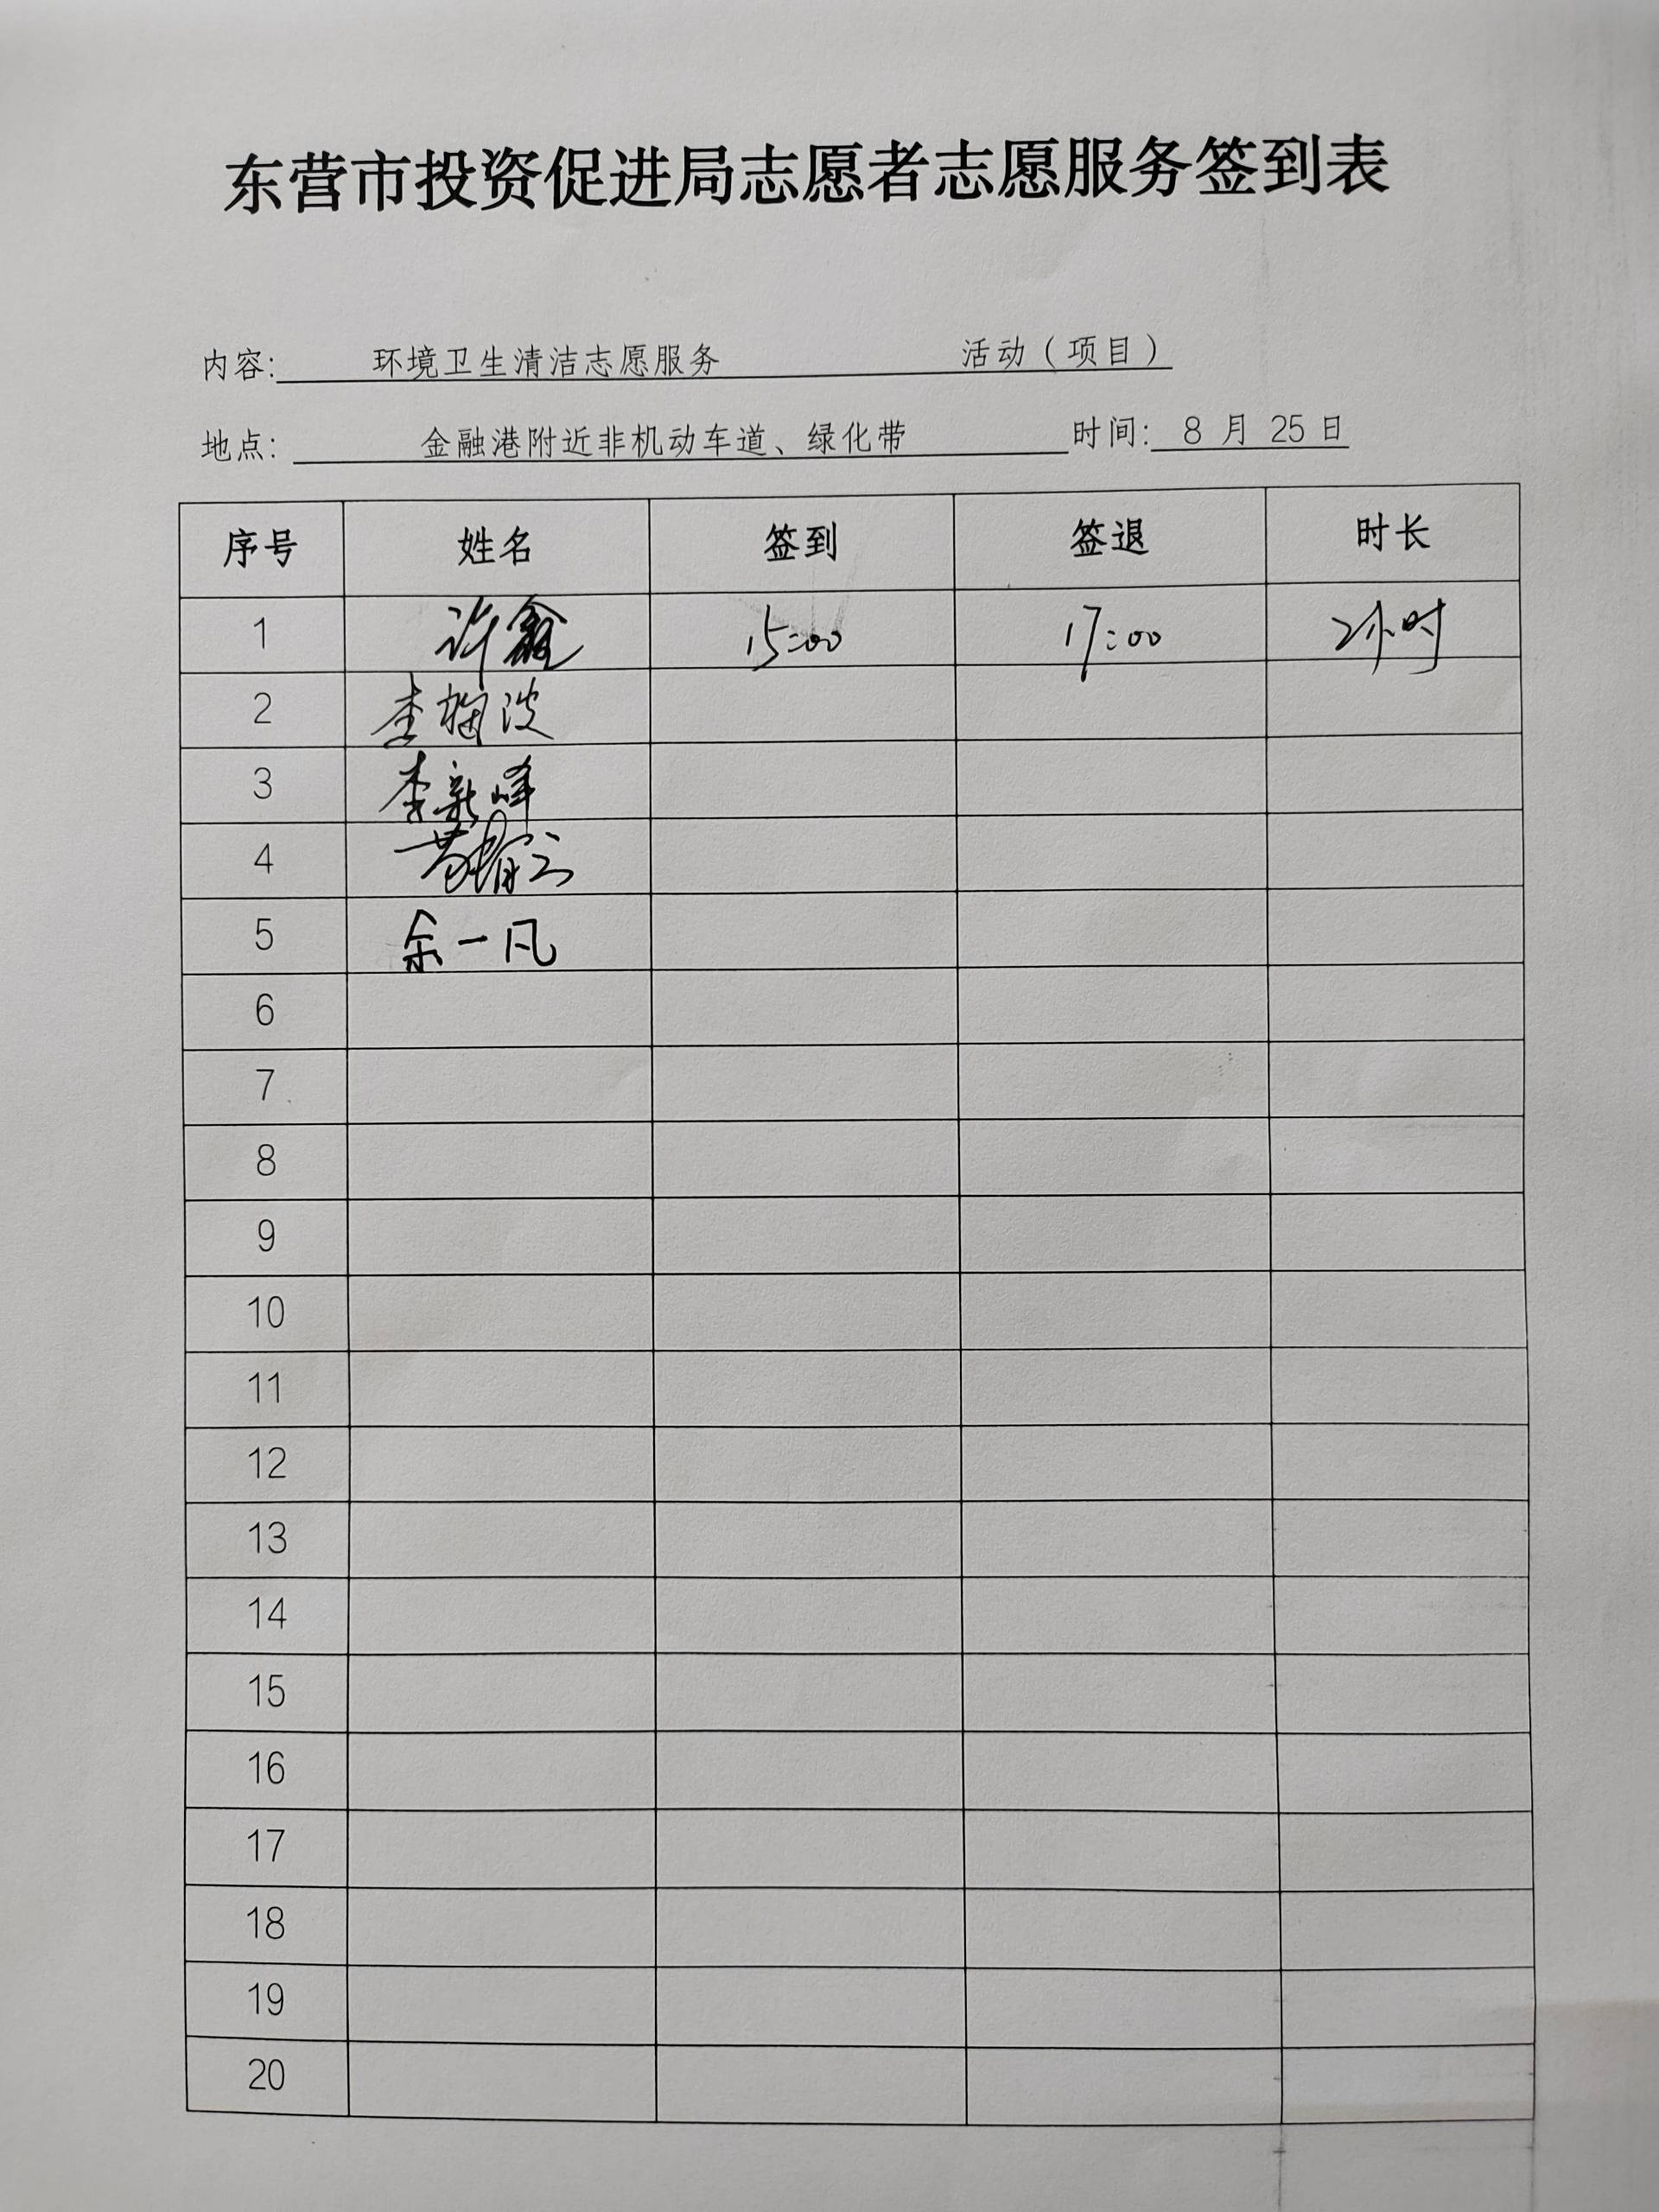 东营市投资促进局志愿者志愿服务签到表
内容: 环境卫生清洁志愿服务 活动（项目）
地点: 金融港附近非机动车道、绿化带 时间: 8 月 25 日
序号 姓名 签到 签退 时长
1 许鑫 15:00 17:00 2小时
2 李 波
3 李新峰
4 黄 云
5 余一凡
6
7
8
9
10
11
12
13
14
15
16
17
18
19
20